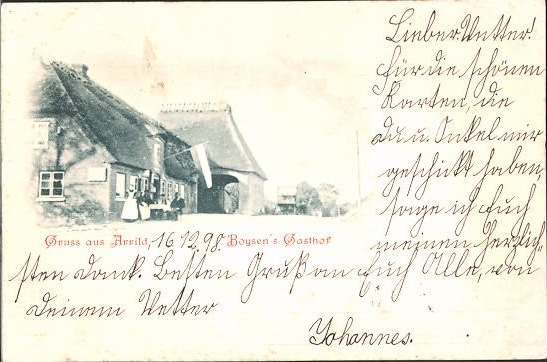 Lieber Vetter!
Für die schönen
Karten, die
Du u. Onkel mir
geschickt haben,
sage ich Euch
meinen herzlich-
Gruss aus Arrild, 16 12. 98. Boysen's Gasthof
sten Dank. Besten Gruß an Euch Alle, von
Deinem Vetter
Johannes.